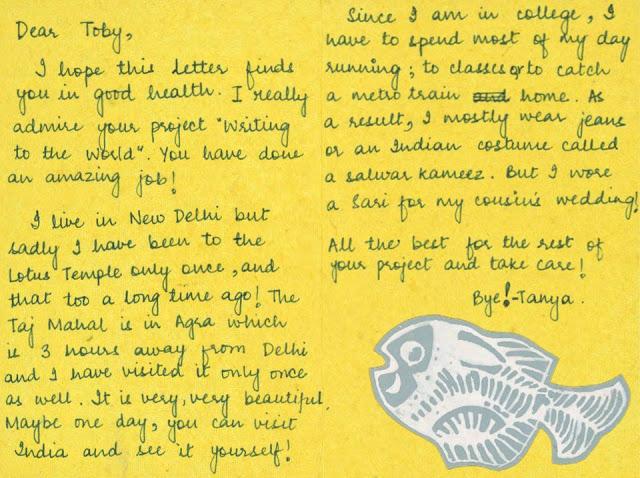 Dear Toby,
I hope this letter finds
you in good health. I really
admire your project "Writing
to the World". You have done
an amazing job!
I live in New Delhi but
sadly I have been to the
Lotus Temple only once, and
that too a long time ago! The
Taj Mahal is in Agra which
is 3 hours away from Delhi
and I have visited it only once
as well. It is very, very beautiful.
Maybe one day, you can visit
India and see it yourself!
Since I am in college, I
have to spend most of my day
running; to classes or to catch
a metro train and home. As
a result, I mostly wear jeans
or an Indian costume called
a salwar kameez. But I wore
a Sari for my cousin's wedding!
All the best for the rest of
your project and take care!
Bye!-Tanya.